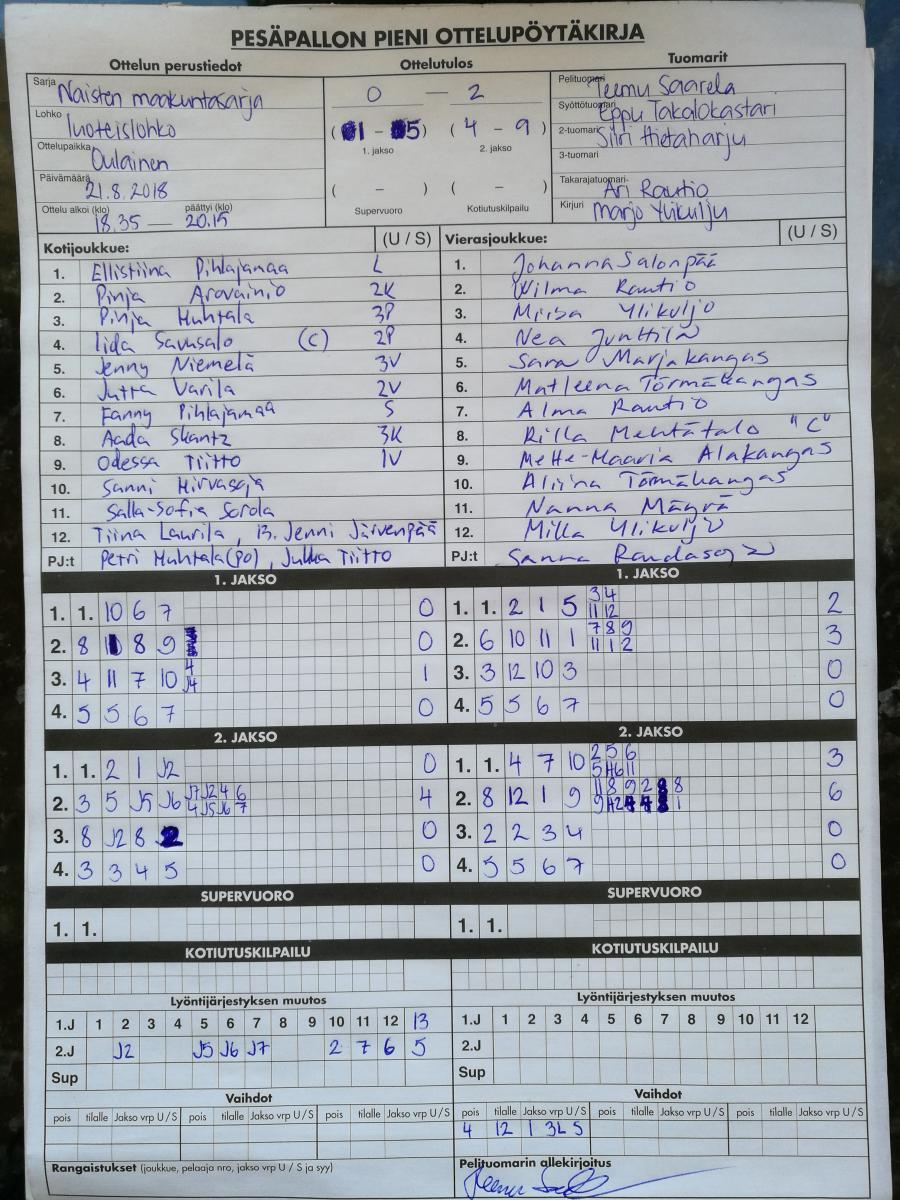 PESÄPALLON PIENI OTTELUPÖYTÄKIRJA
Ottelun perustiedot
Sarja Naisten maakuntasarja
Lohko luoteislohko
Ottelupaikka Oulainen
Päivämäärä 21.8.2018
Ottelu alkoi (klo) päättyi (klo)
18.35 — 20.15
Ottelutulos
0 — 2
(1 - 5) (4 - 9)
1. jakso 2. jakso
( - ) ( - )
Supervuoro Kotiutuskilpailu
Tuomarit
Pelituomari Teemu Saarela
Syöttötuomari Eppu Takalokastari
2-tuomari Siiri Hietaharju
3-tuomari
Takarajatuomari Ari Rautio
Kirjuri Marjo Ylikulju
Kotijoukkue: (U / S)
1. Ellistiina Pihlajamaa L
2. Pinja Arovainio 2K
3. Pinja Huhtala 3P
4. Iida Savusalo (C) 2P
5. Jenny Niemelä 3V
6. Jutta Varila 2V
7. Fanny Pihlajamaa S
8. Aada Skantz 3K
9. Odessa Tiitto 1V
10. Sanni Hirvasoja
11. Salla-Sofia Sorola
12. Tiina Laurila, 13. Jenni Järvenpää
PJ:t Petri Huhtala (PO), Jukka Tiitto
Vierasjoukkue: (U / S)
1. Johanna Salonpää
2. Wilma Rautio
3. Ylikuljo
4. Nea Junttila
5. Sara Marjakangas
6. Matleena Törmäkangas
7. Alma Rautio
8. Rilla Mehtätalo "C"
9. Mette-Maaria Alakangas
10. Aliina Törmäkangas
11. Nanna Mägrä
12. Milla Ylikuljo
PJ:t Sanna Randasoja
1. JAKSO
1. 1. 10 6 7 0
2. 8 8 9 0
3. 4 11 7 10 4 J4 1
4. 5 5 6 7 0
1. JAKSO
1. 1. 2 1 5 3 4 11 12 2
2. 6 10 11 1 7 8 9 11 1 2 3
3. 3 12 10 3 0
4. 5 5 6 7 0
2. JAKSO
1. 1. 2 1 J2 0
2. 3 5 J5 J6 J7 J2 4 6 4 J5 J6 7 4
3. 8 J2 8 0
4. 3 3 4 5 0
2. JAKSO
1. 1. 4 7 10 2 5 6 5 H6 11 3
2. 8 12 1 9 11 8 9 2 8 9 H2 1 6
3. 2 2 3 4 0
4. 5 5 6 7 0
SUPERVUORO
1. 1.
SUPERVUORO
1. 1.
KOTIUTUSKILPAILU
KOTIUTUSKILPAILU
Lyöntijärjestyksen muutos
1.J 1 2 3 4 5 6 7 8 9 10 11 12 13
2.J J2 J5 J6 J7 2 7 6 5
Sup
Lyöntijärjestyksen muutos
1.J 1 2 3 4 5 6 7 8 9 10 11 12
2.J
Sup
Vaihdot
pois tilalle Jakso vrp U / S pois tilalle Jakso vrp U / S pois tilalle Jakso vrp U / S
Vaihdot
pois tilalle Jakso vrp U / S pois tilalle Jakso vrp U / S pois tilalle Jakso vrp U / S
4 12 1 3L S
Rangaistukset (joukkue, pelaaja nro, jakso vrp U / S ja syy)
Pelituomarin allekirjoitus